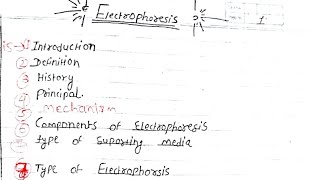 Electrophoresis
1
Introduction
② Definition
③ History
④ Principal.
⑤ mechanism
⑥ Components of Electrophoresis
type of Suporting media
Type of Electrophorsis